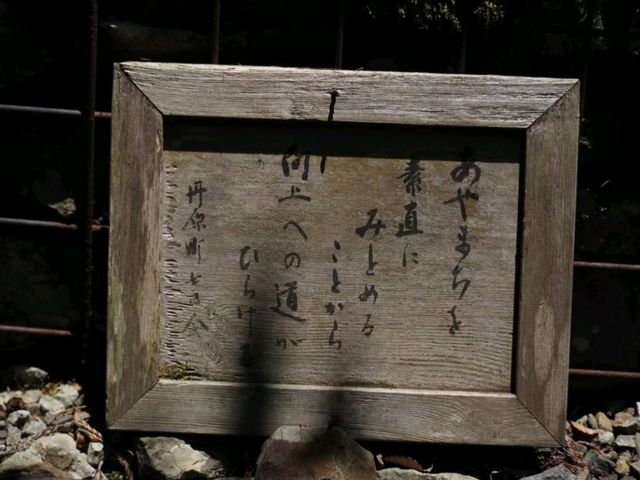 あやまちを
素直に
みとめる
ことから
向上への道が
ひらける
丹原町七日会